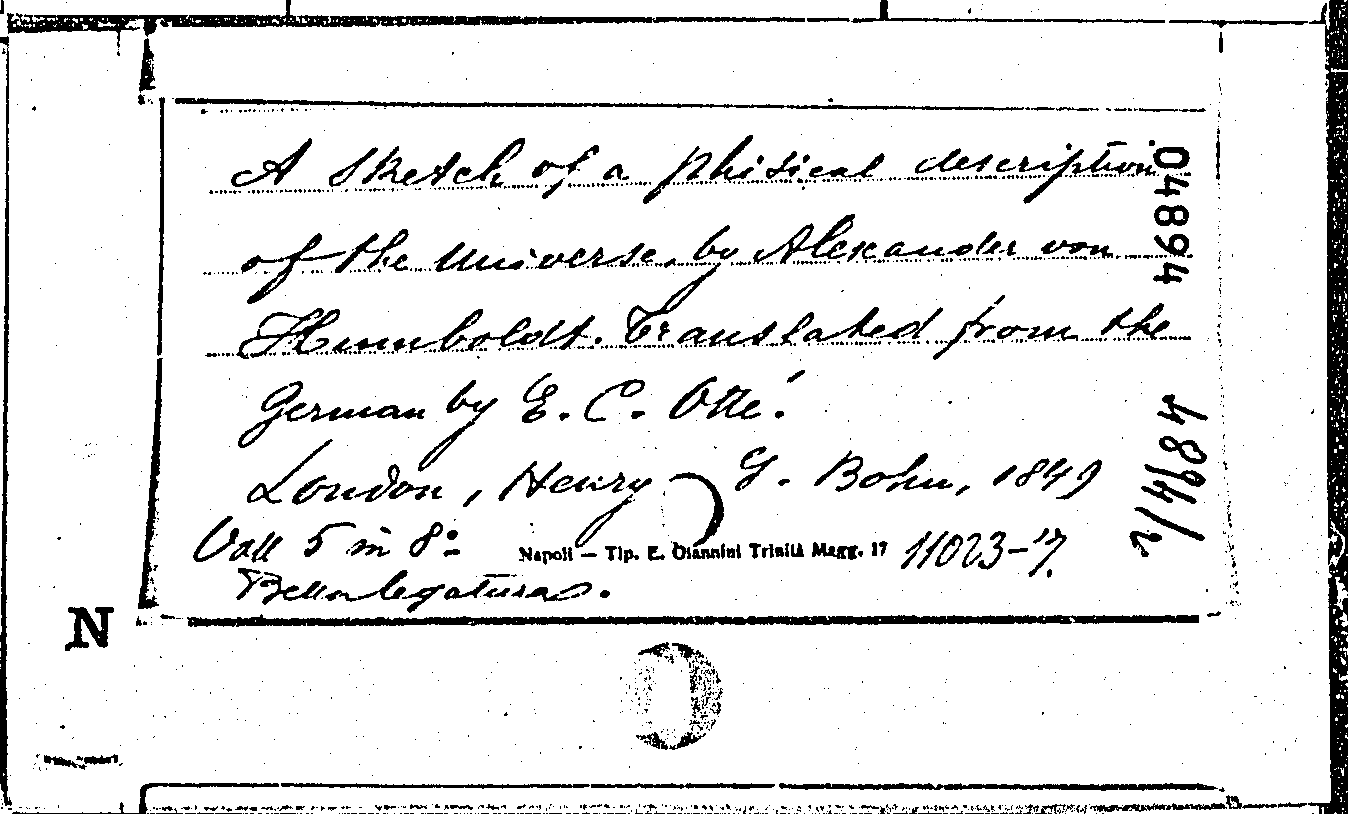 A sketch of a phisical description
of the Universe, by Alexander von
Humboldt. Translated from the
German by E. C. Otté.
London, Henry G. Bohn, 1849
Voll 5 in 8º
Napoli — Tip. E. Giannini Trinità Magg. 17
11023-7.
Bella legatura.
04894
4894/2
N